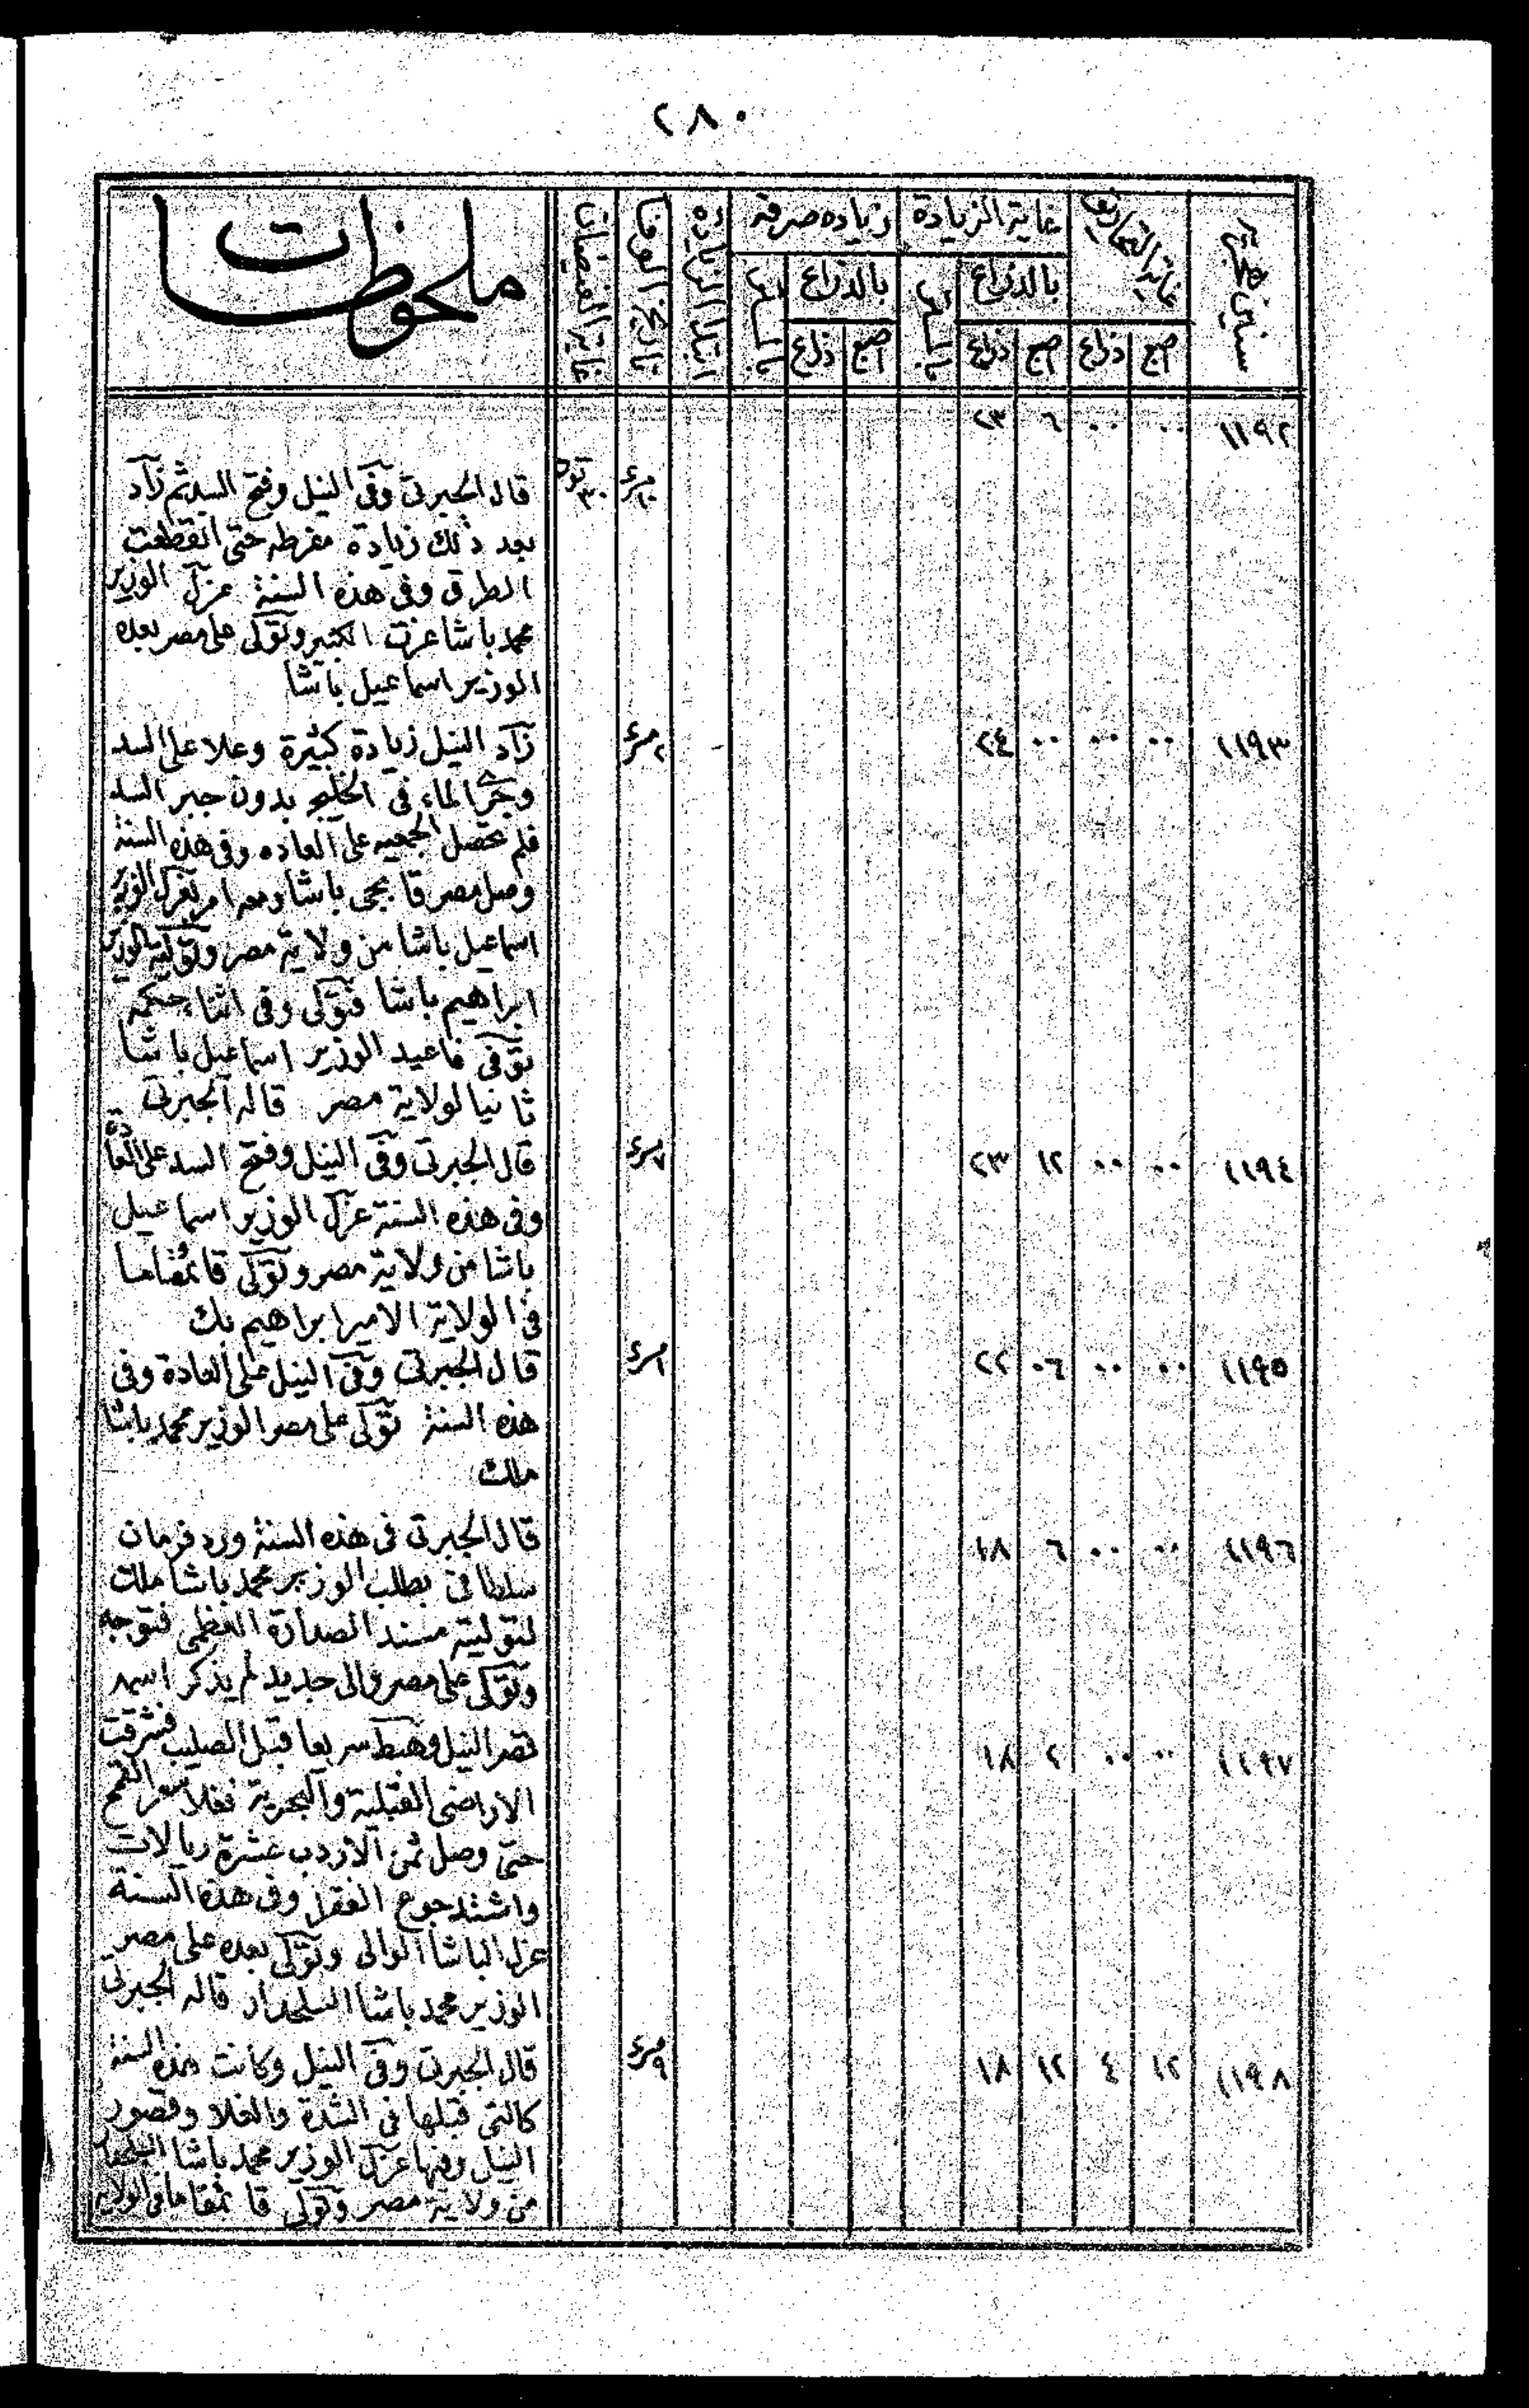 ٢٨٠
سنين هجرية
غاية التحاريق
غاية الزيادة
زيادة صرفه
ابتداء الزيادة
تاريخ الوفا
غاية الفيضان
ملحوظات
بالذراع
بالمتر
بالذراع
بالمتر
اصبع ذراع اصبع ذراع اصبع ذراع
١١٩٢ ٠٠ ٠٠ ٦ ٢٣
قال الجبرتى وفى النيل وفتح السد ثم زاد
بعد ذلك زيادة مفرطه حتى انقطعت
الطرق وفى هذه السنة عزل الوزير
محمد باشا عزت الكبير وتولى على مصر بعده
الوزير اسماعيل باشا
١١٩٣ ٠٠ ٠٠ ٠٠ ٢٤ ٢ مسرى
زاد النيل زيادة كثيرة وعلا على السد
وجرى الماء فى الخليج بدون جبر السد
فلم تحصل الجمعيه على العاده وفى هذه السنة
وصل مصر قابجى باشا ومعه امر بعزل الوزير
اسماعيل باشا من ولاية مصر وتولية الوزير
ابراهيم باشا فتولى وفى اثناء حكمه
توفى فاعيد الوزير اسماعيل باشا
ثانيا لولاية مصر قاله الجبرتى
١١٩٤ ٠٠ ٠٠ ١٢ ٢٣ ٧ مسرى
قال الجبرتى وفى النيل وفتح السد على العادة
وفى هذه السنة عزل الوزير اسماعيل
باشا من ولاية مصر وتولى قائمقاما
فى الولاية الامير ابراهيم بك
١١٩٥ ٠٠ ٠٠ ٠٦ ٢٢ ١ مسرى
قال الجبرتى وفى النيل على العادة وفى
هذه السنة تولى على مصر الوزير محمد باشا
ملك
١١٩٦ ٠٠ ٠٠ ٦ ١٨
قال الجبرتى فى هذه السنة ورد فرمان
سلطانى بطلب الوزير محمد باشا ملك
لتوليته مسند الصدارة العظمى فتوجه
وتولى على مصر والى جديد لم يذكر اسمه
١١٩٧ ٠٠ ٠٠ ٢ ١٨
قصر النيل وهبط سريعا قبل الصليب فشرقت
الاراضى القبلية والبحرية فغلا سعر القمح
حتى وصل ثمن الاردب عشرة ريالات
واشتد جوع الفقراء وفى هذه السنة
عزل الباشا الوالى وتولى بعده على مصر
الوزير محمد باشا السلحدار قاله الجبرتى
١١٩٨ ١٢ ٤ ١٢ ١٨ ٩ مسرى
قال الجبرتى وفى النيل وكانت هذه السنة
كالتى قبلها فى الشدة والغلا وقصور
النيل وفيها عزل الوزير محمد باشا السلحدار
من ولاية مصر وتولى قائمقاما فى الولاية